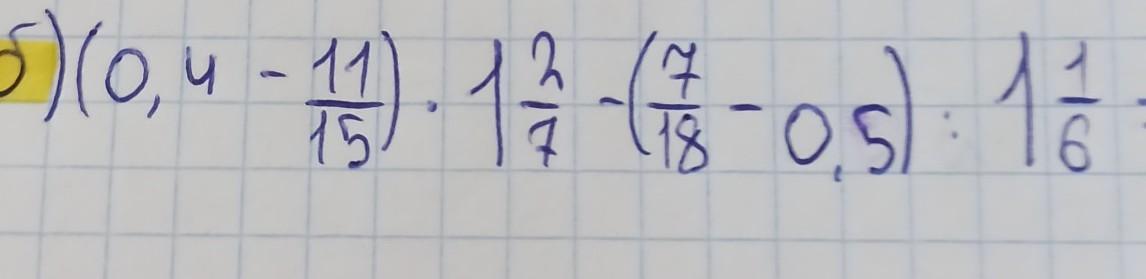 б) (0,4 - 11/15) · 1 2/7 - (7/18 - 0,5) : 1 1/6 =